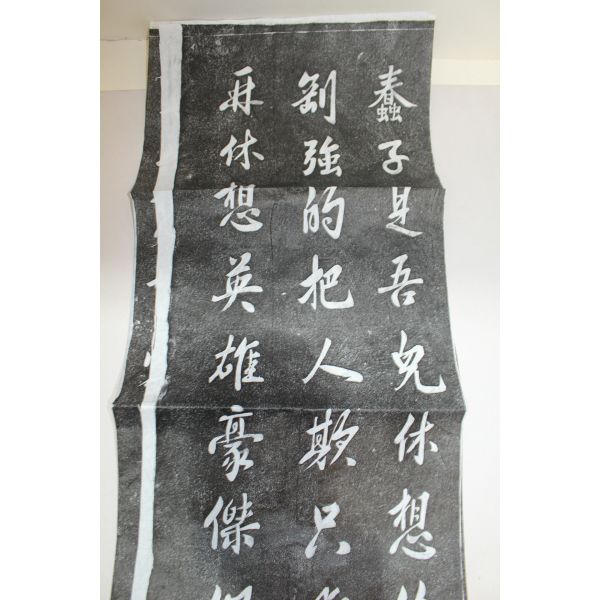 蠢子是吾兒休想
剛強的把人欺只
再休想英雄豪傑